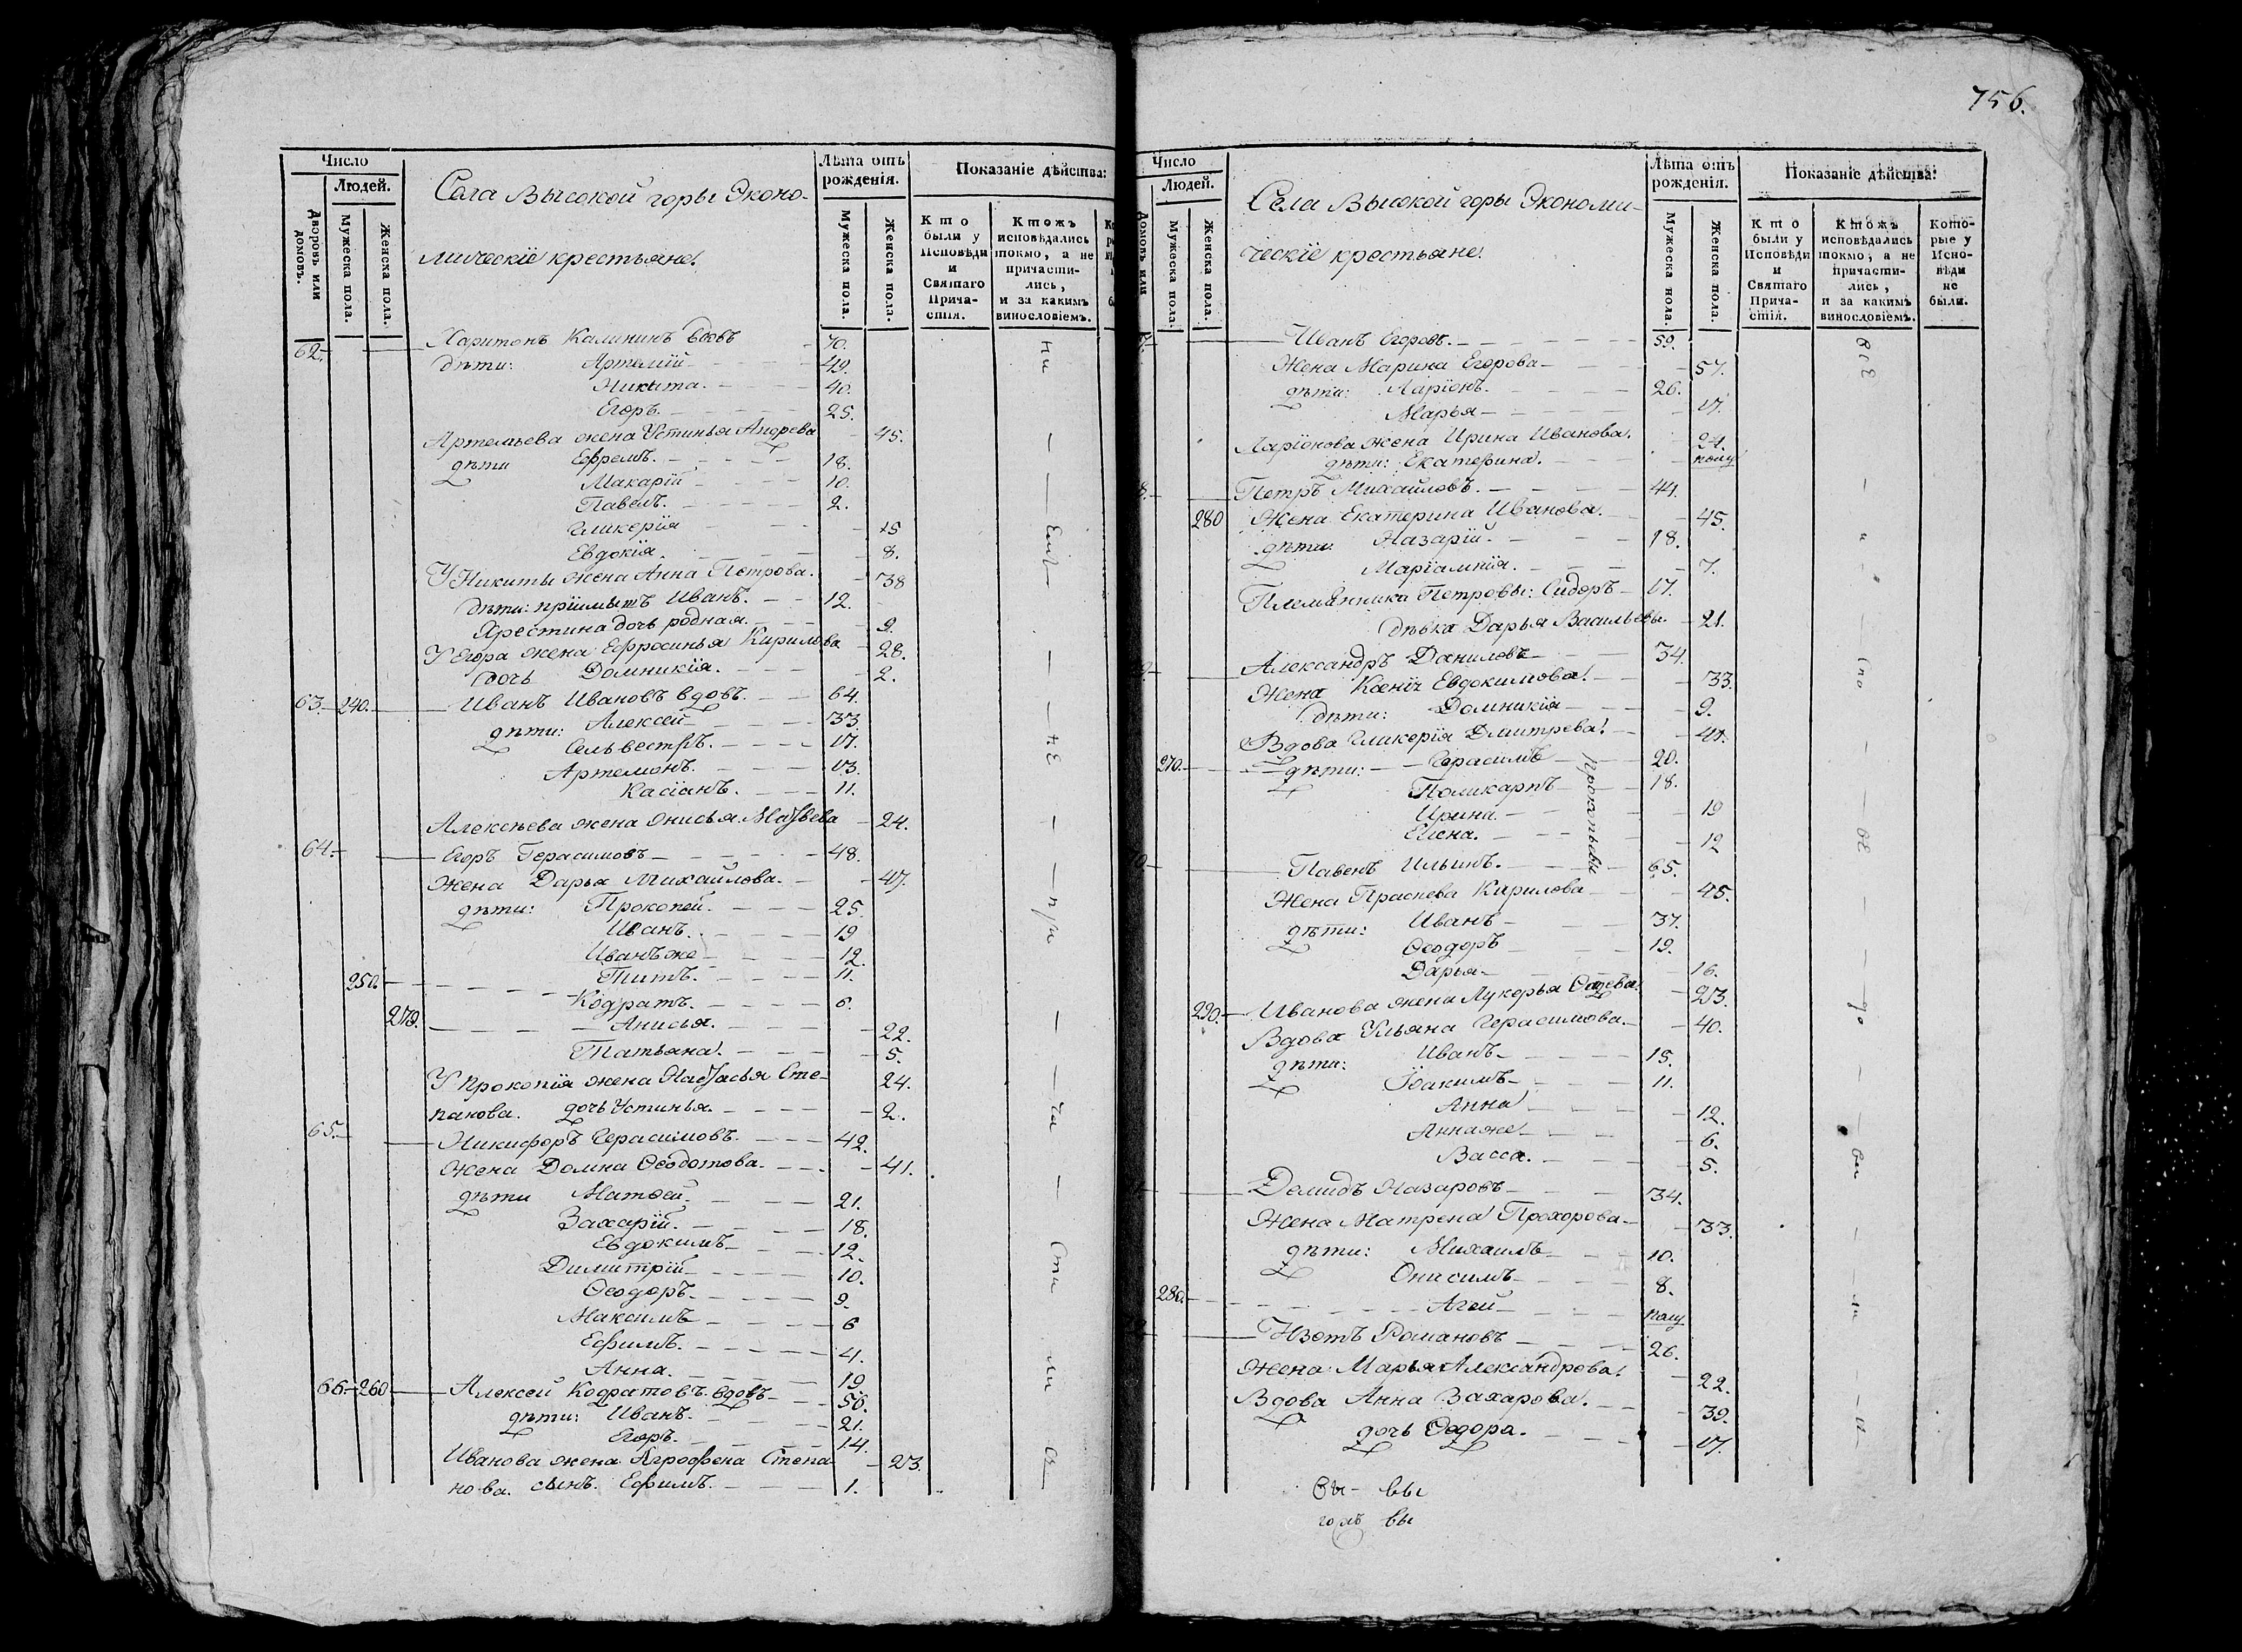 756.
Число
Людей.
Дворовъ или домовъ.
Мужеска пола.
Женска пола.
Села Высокой горы Эконо-
мическіе крестьяне.
Лѣта отъ рожденія.
Мужеска пола.
Женска пола.
Показаніе дѣйства:
Кто были у Исповѣди и Святаго Прича-стія.
Ктожъ исповѣдались токмо, а не причасти-лись, и за какимъ винословіемъ.
62. Харитонъ Калининъ вдовъ 70.
дѣти: Артемій 49.
Никита. 40.
Егоръ. 25.
Артемьева жена Устинья Андрева 45.
дѣти Ефремъ. 18.
Макарій 10.
Павелъ. 2.
Гликерія 15
Евдокія. 8.
У Никиты жена Анна Петрова. 38
дѣти: пріимышъ Иванъ. 12.
Хрестина дочь родная. 9.
У Егора жена Ефросинья Кирилова 28.
дочь Домникія. 2.
63. 240. Иванъ Ивановъ вдовъ. 64.
дѣти: Алексей 33.
Сельвестръ. 17.
Артемонъ. 13.
Касіанъ. 11.
Алексѣева жена Онисья Матвева 24.
64. Егоръ Герасимовъ 48.
Жена Дарья Михайлова. 47.
дѣти: Прокопей. 25.
Иванъ. 19
Иванъ же 12.
250. Титъ. 11.
Кодратъ. 6.
270. Анисья. 22.
Татьяна. 5.
У Прокопія жена Настасья Сте- 24.
панова. дочь Устинья. 2.
65. Никифоръ Герасимовъ. 42.
Жена Домна Ѳеодотова. 41.
дѣти Матѳей. 21.
Захарій. 18.
Евдокимъ 12.
Димитрій 10.
Ѳеодоръ. 9.
Максимъ 6
Ефимъ. 4.
Анна. 19.
66. 260 Алексей Кодратовъ вдовъ 50.
дѣти: Иванъ. 21.
Егоръ. 14.
Иванова жена Агрофена Степа- 23.
нова. сынъ. Ефимъ. 1.
Число
Людей.
Домовъ или
Мужеска пола.
Женска пола.
Села Высокой горы Экономи-
ческіе крестьяне.
Лѣта отъ рожденія.
Мужеска пола.
Женска пола.
Показаніе дѣйства:
Кто были у Исповѣди и Святаго Прича-стія.
Ктожъ исповѣдались токмо, а не причасти-лись, и за какимъ винословіемъ.
Кото-рые у Испо-вѣди не были.
Иванъ Егоровъ. 59.
Жена Марина Егорова 57.
дѣти: Ларіонъ. 26.
Марья 17.
Ларіонова жена Ирина Иванова. 24.
дѣти: Екатерина. полу
Петръ Михайловъ. 44.
280 Жена Екатерина Иванова. 45.
дѣти: Назарій. 18.
Маріамнія. 7.
Племянника Петровы: Сидоръ 17.
дѣвка Дарья Васильевы. 21.
Александръ Даниловъ 34.
Жена Ксенія Евдокимова. 33.
дѣти: Домникія 9.
Вдова Гликерія Дмитрева.
270. дѣти: Герасимъ 20.
Поликарпъ 18.
Ирина. 19
Елена. 12
Прокопьевы
Павелъ Ильинъ. 65.
Жена Прасчева Кирилова 45.
дѣти: Иванъ 37.
Ѳеодоръ 19.
Дарья 16.
290. Иванова жена Лукерья 23.
Вдова Ульяна Герасимова. 40.
дѣти: Иванъ 15.
Іоакимъ 11.
Анна 12.
Анна же 6.
Васса. 5.
Демидъ Назаровъ 34.
Жена Матрена Прохорова 33.
дѣти: Михаилъ 10.
Онисимъ 8.
280. Агей полу
Изотъ Романовъ 26.
Жена Марья Александрова. 22.
Вдова Анна Захарова. 39.
дочь Ѳедора. 17.